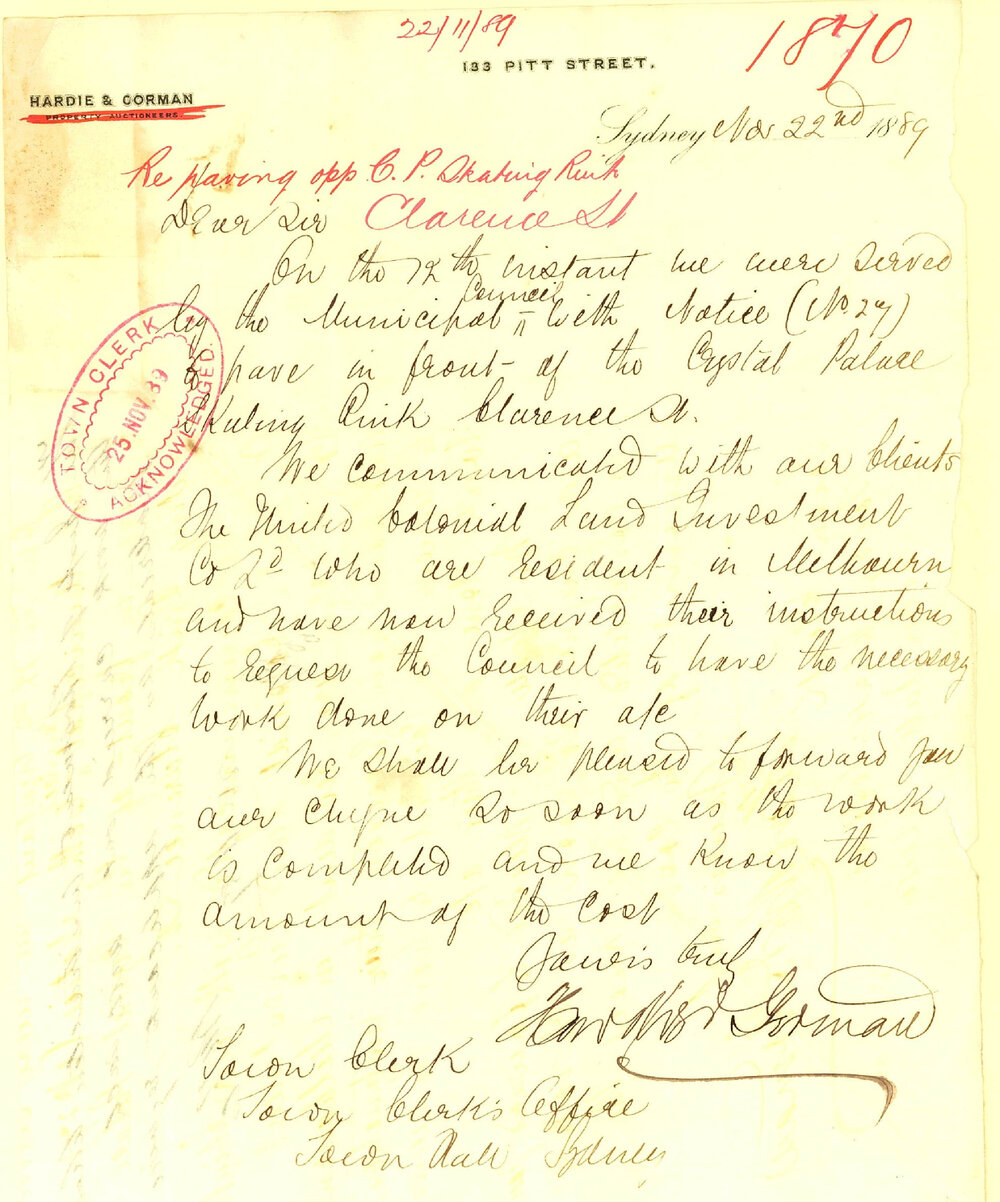 22/11/89
1870
133 PITT STREET.
HARDIE & GORMAN
PROPERTY AUCTIONEERS
Sydney Nov 22nd 1889
Re paving opp C. P. Skating Rink
Clarence St
Dear Sir
On the 12th instant we were served
by the Municipal Council with Notice (No. 27)
to pave in front of the Crystal Palace
Skating Rink Clarence St.
We communicated with our Clients
The United Colonial Land Investment
Co Ld who are resident in Melbourn
and have now received their instructions
to request the Council to have the necessary
work done on their a/c
We shall be pleased to forward you
our cheque so soon as the work
is completed and we know the
amount of the cost
Yours truly
Hardie & Gorman
Town Clerk
Town Clerk's Office
Town Hall Sydney
TOWN CLERK
25. NOV. 89
ACKNOWLEDGED.